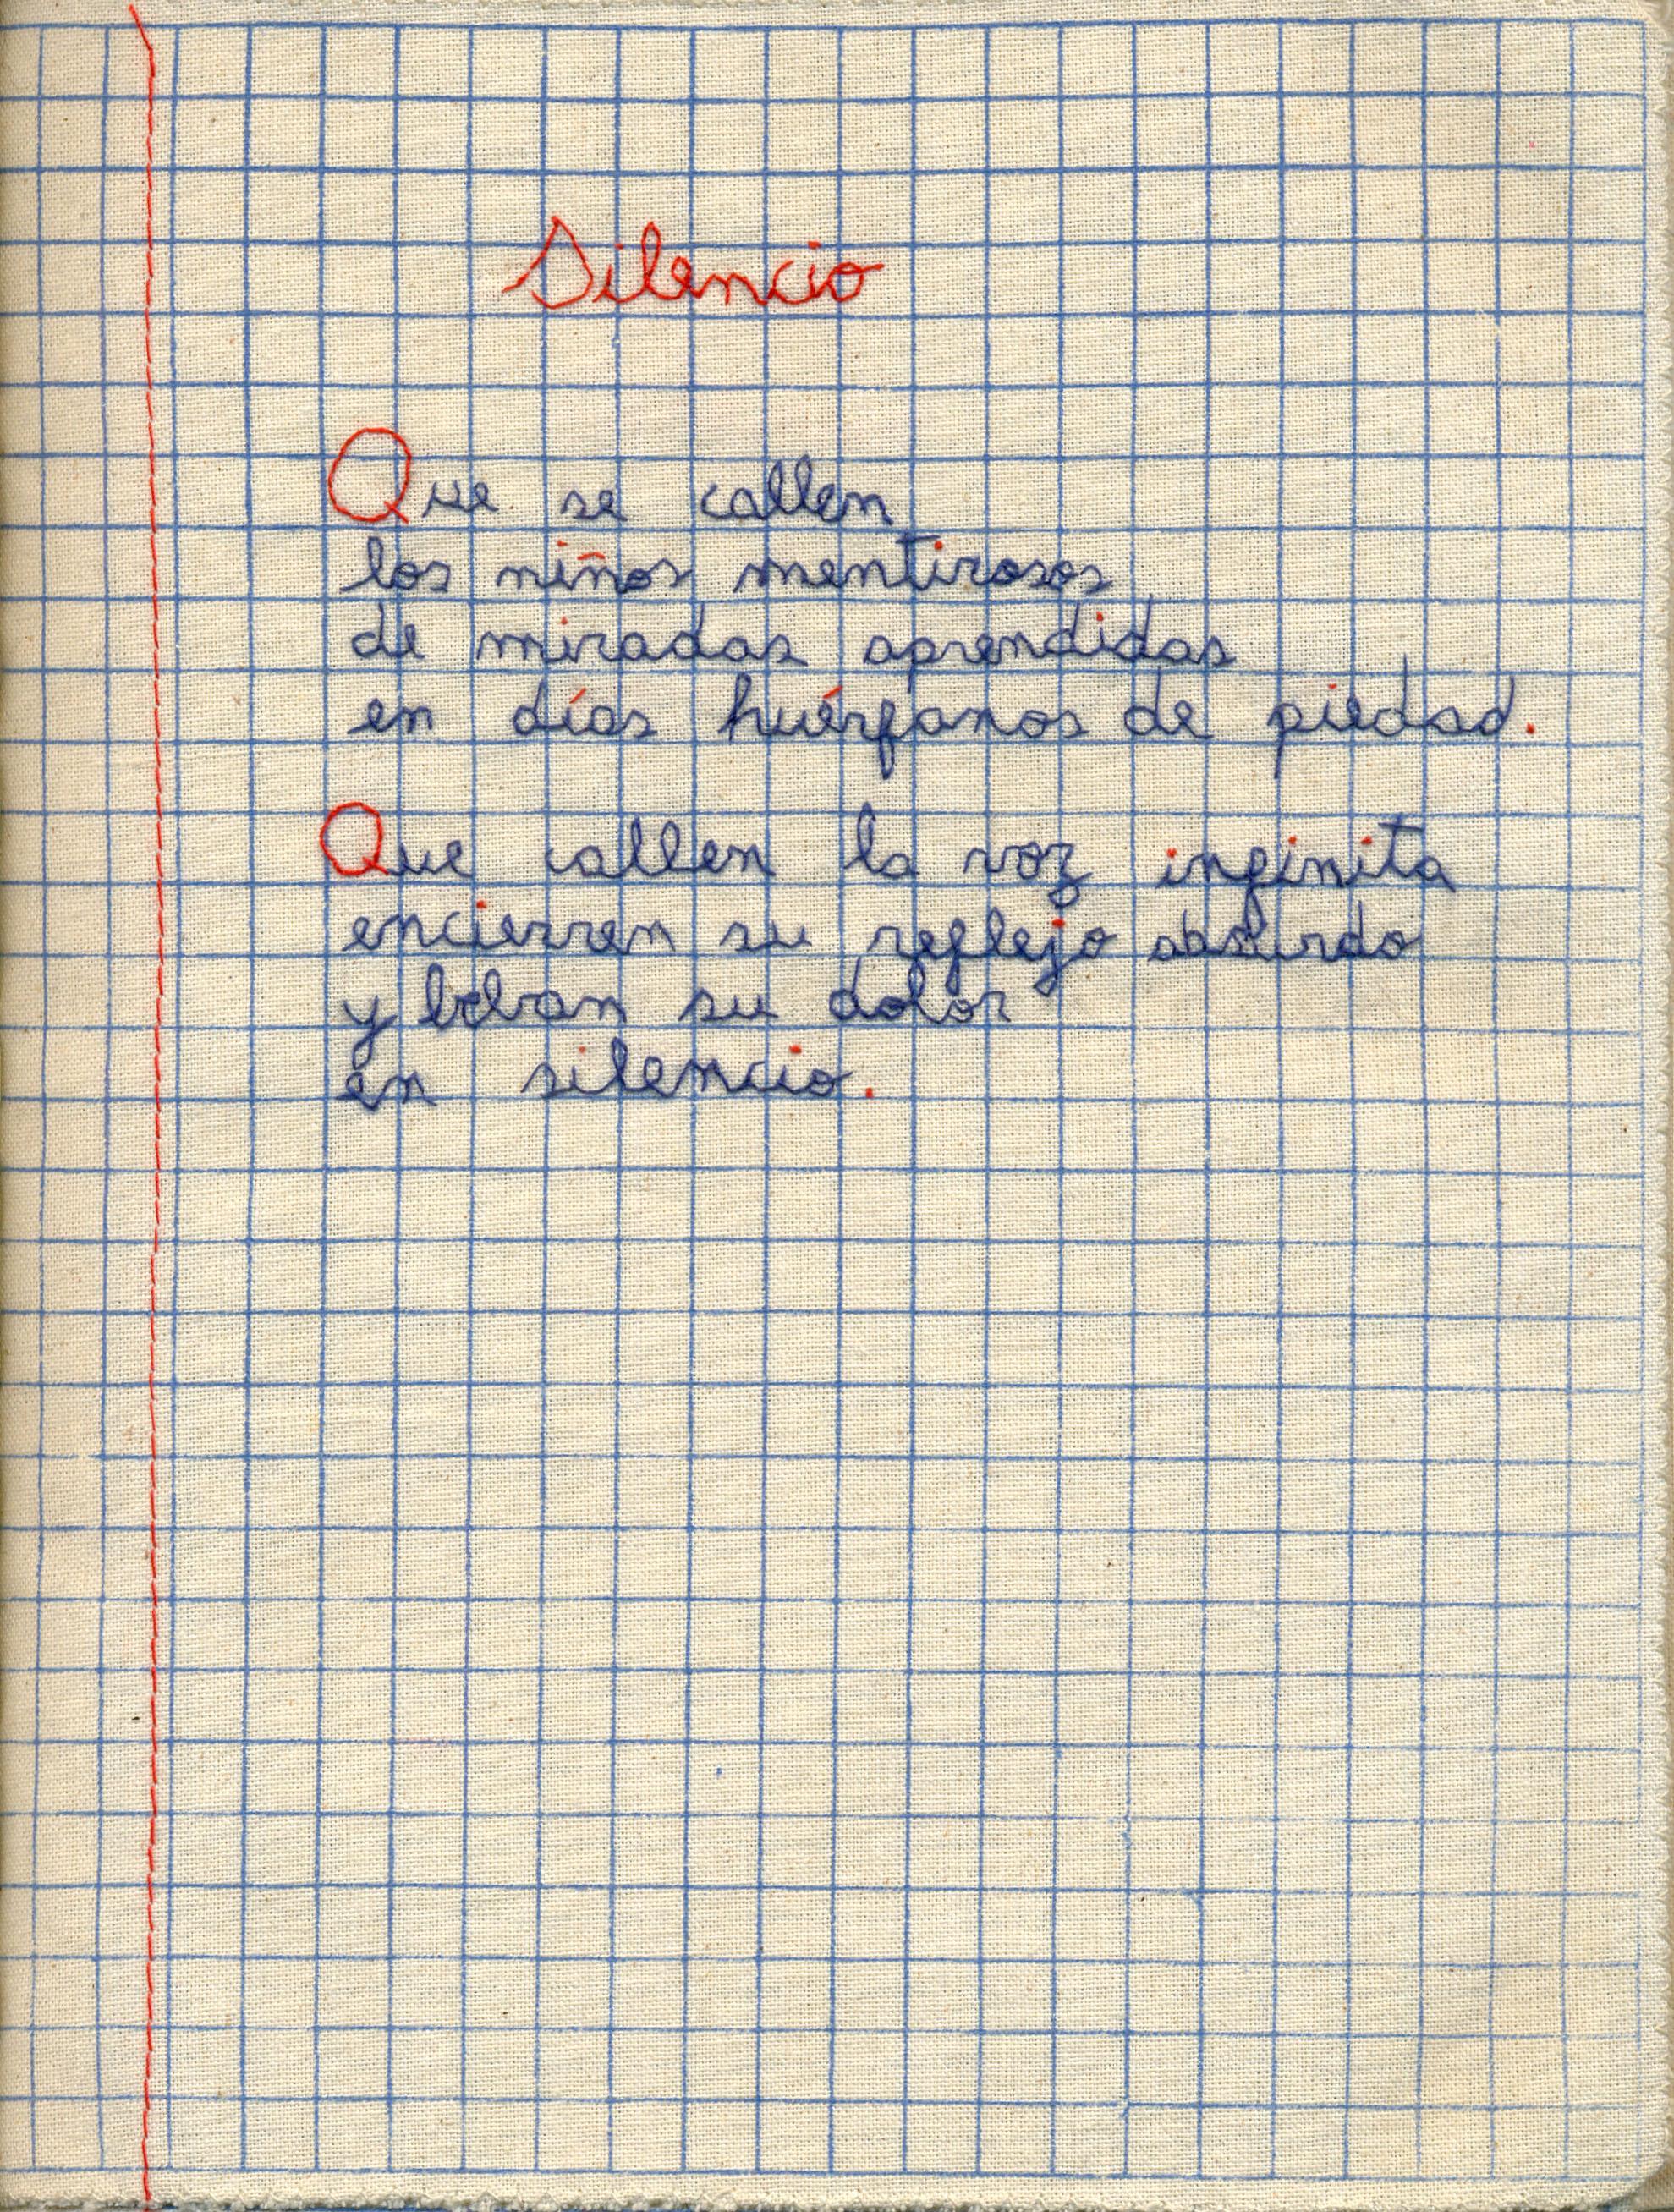 Silencio
Que se callen
los niños mentirosos
de miradas aprendidas
en días huérfanos de piedad.
Que callen la voz infinita
encierren su reflejo absurdo
y beban su dolor
en silencio.